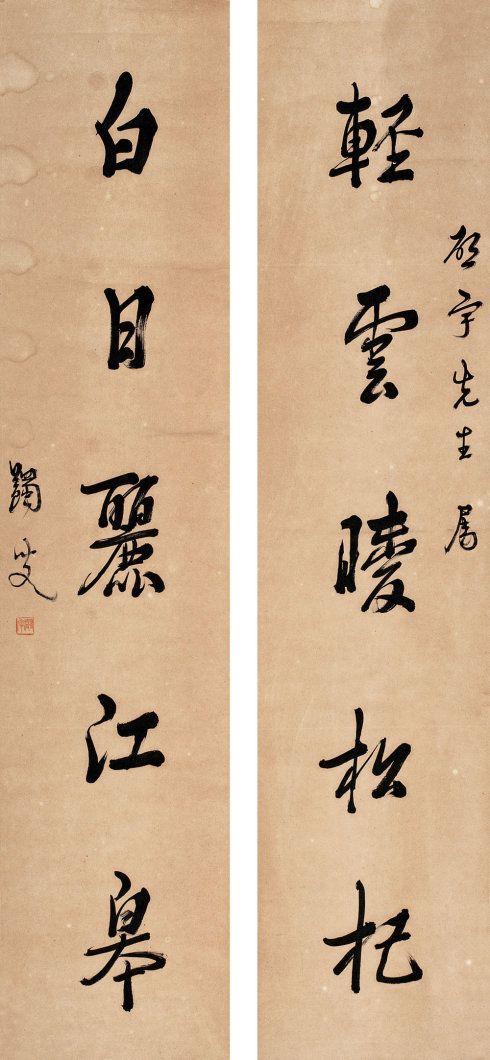 啟宇先生属
輕雲曖松杞
白日麗江皋
蠲叟